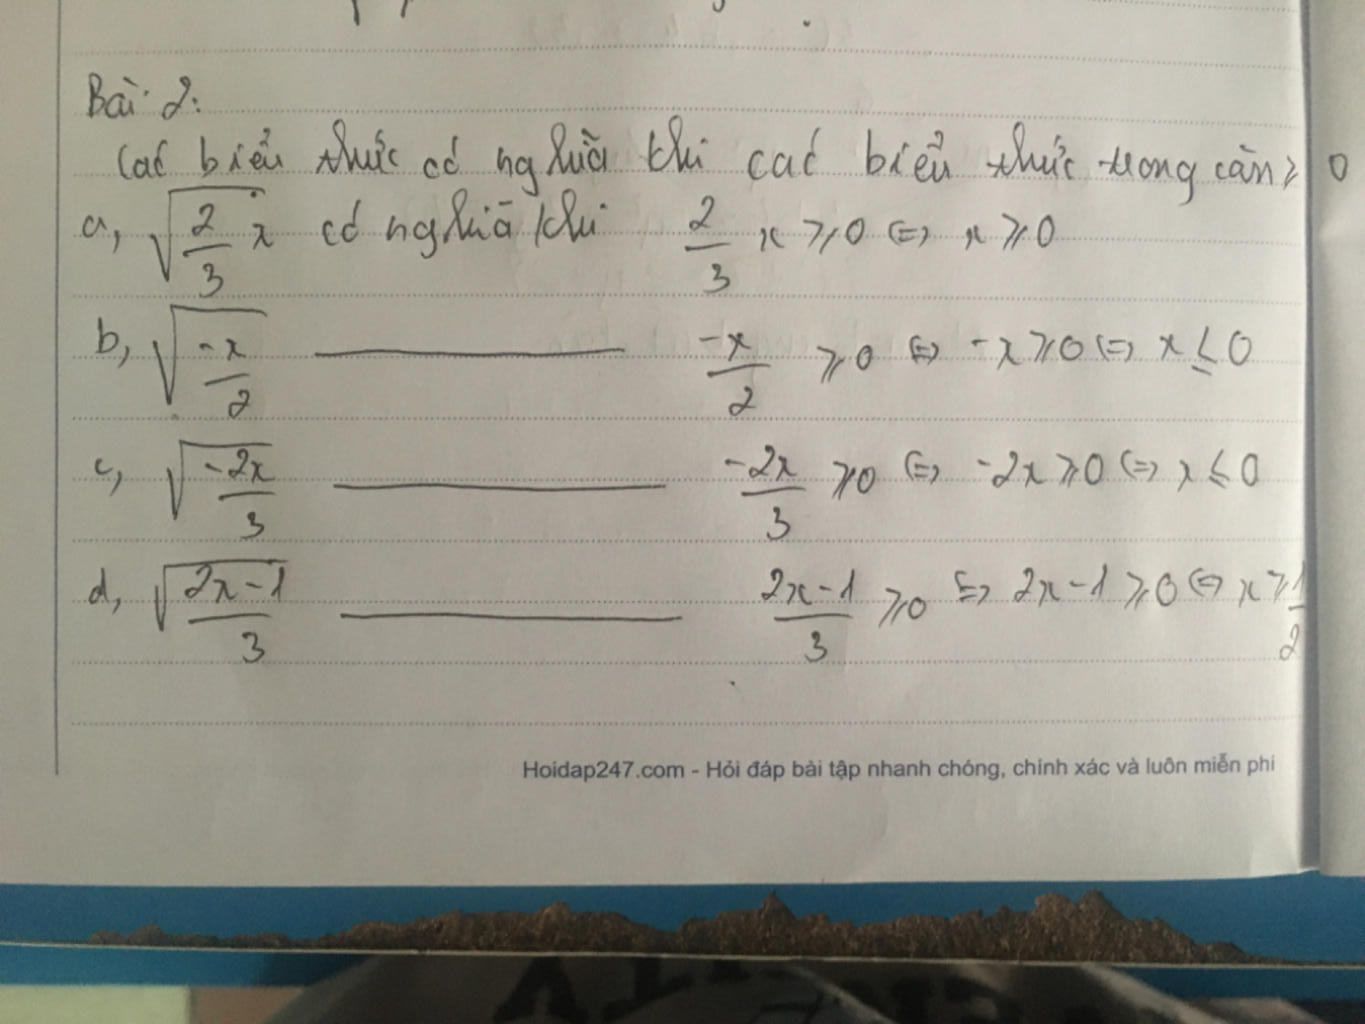 Bài 2:
Các biểu thức có nghĩa khi các biểu thức trong căn ≥ 0
a, √(2/3 x) có nghĩa khi 2/3 x ≥ 0 ⇔ x ≥ 0
b, √(-x/2) ——— -x/2 ≥ 0 ⇔ -x ≥ 0 ⇔ x ≤ 0
c, √(-2x/3) ——— -2x/3 ≥ 0 ⇔ -2x ≥ 0 ⇔ x ≤ 0
d, √(2x-1/3) ——— 2x-1/3 ≥ 0 ⇔ 2x-1 ≥ 0 ⇔ x ≥ 1/2
Hoidap247.com - Hỏi đáp bài tập nhanh chóng, chính xác và luôn miễn phí